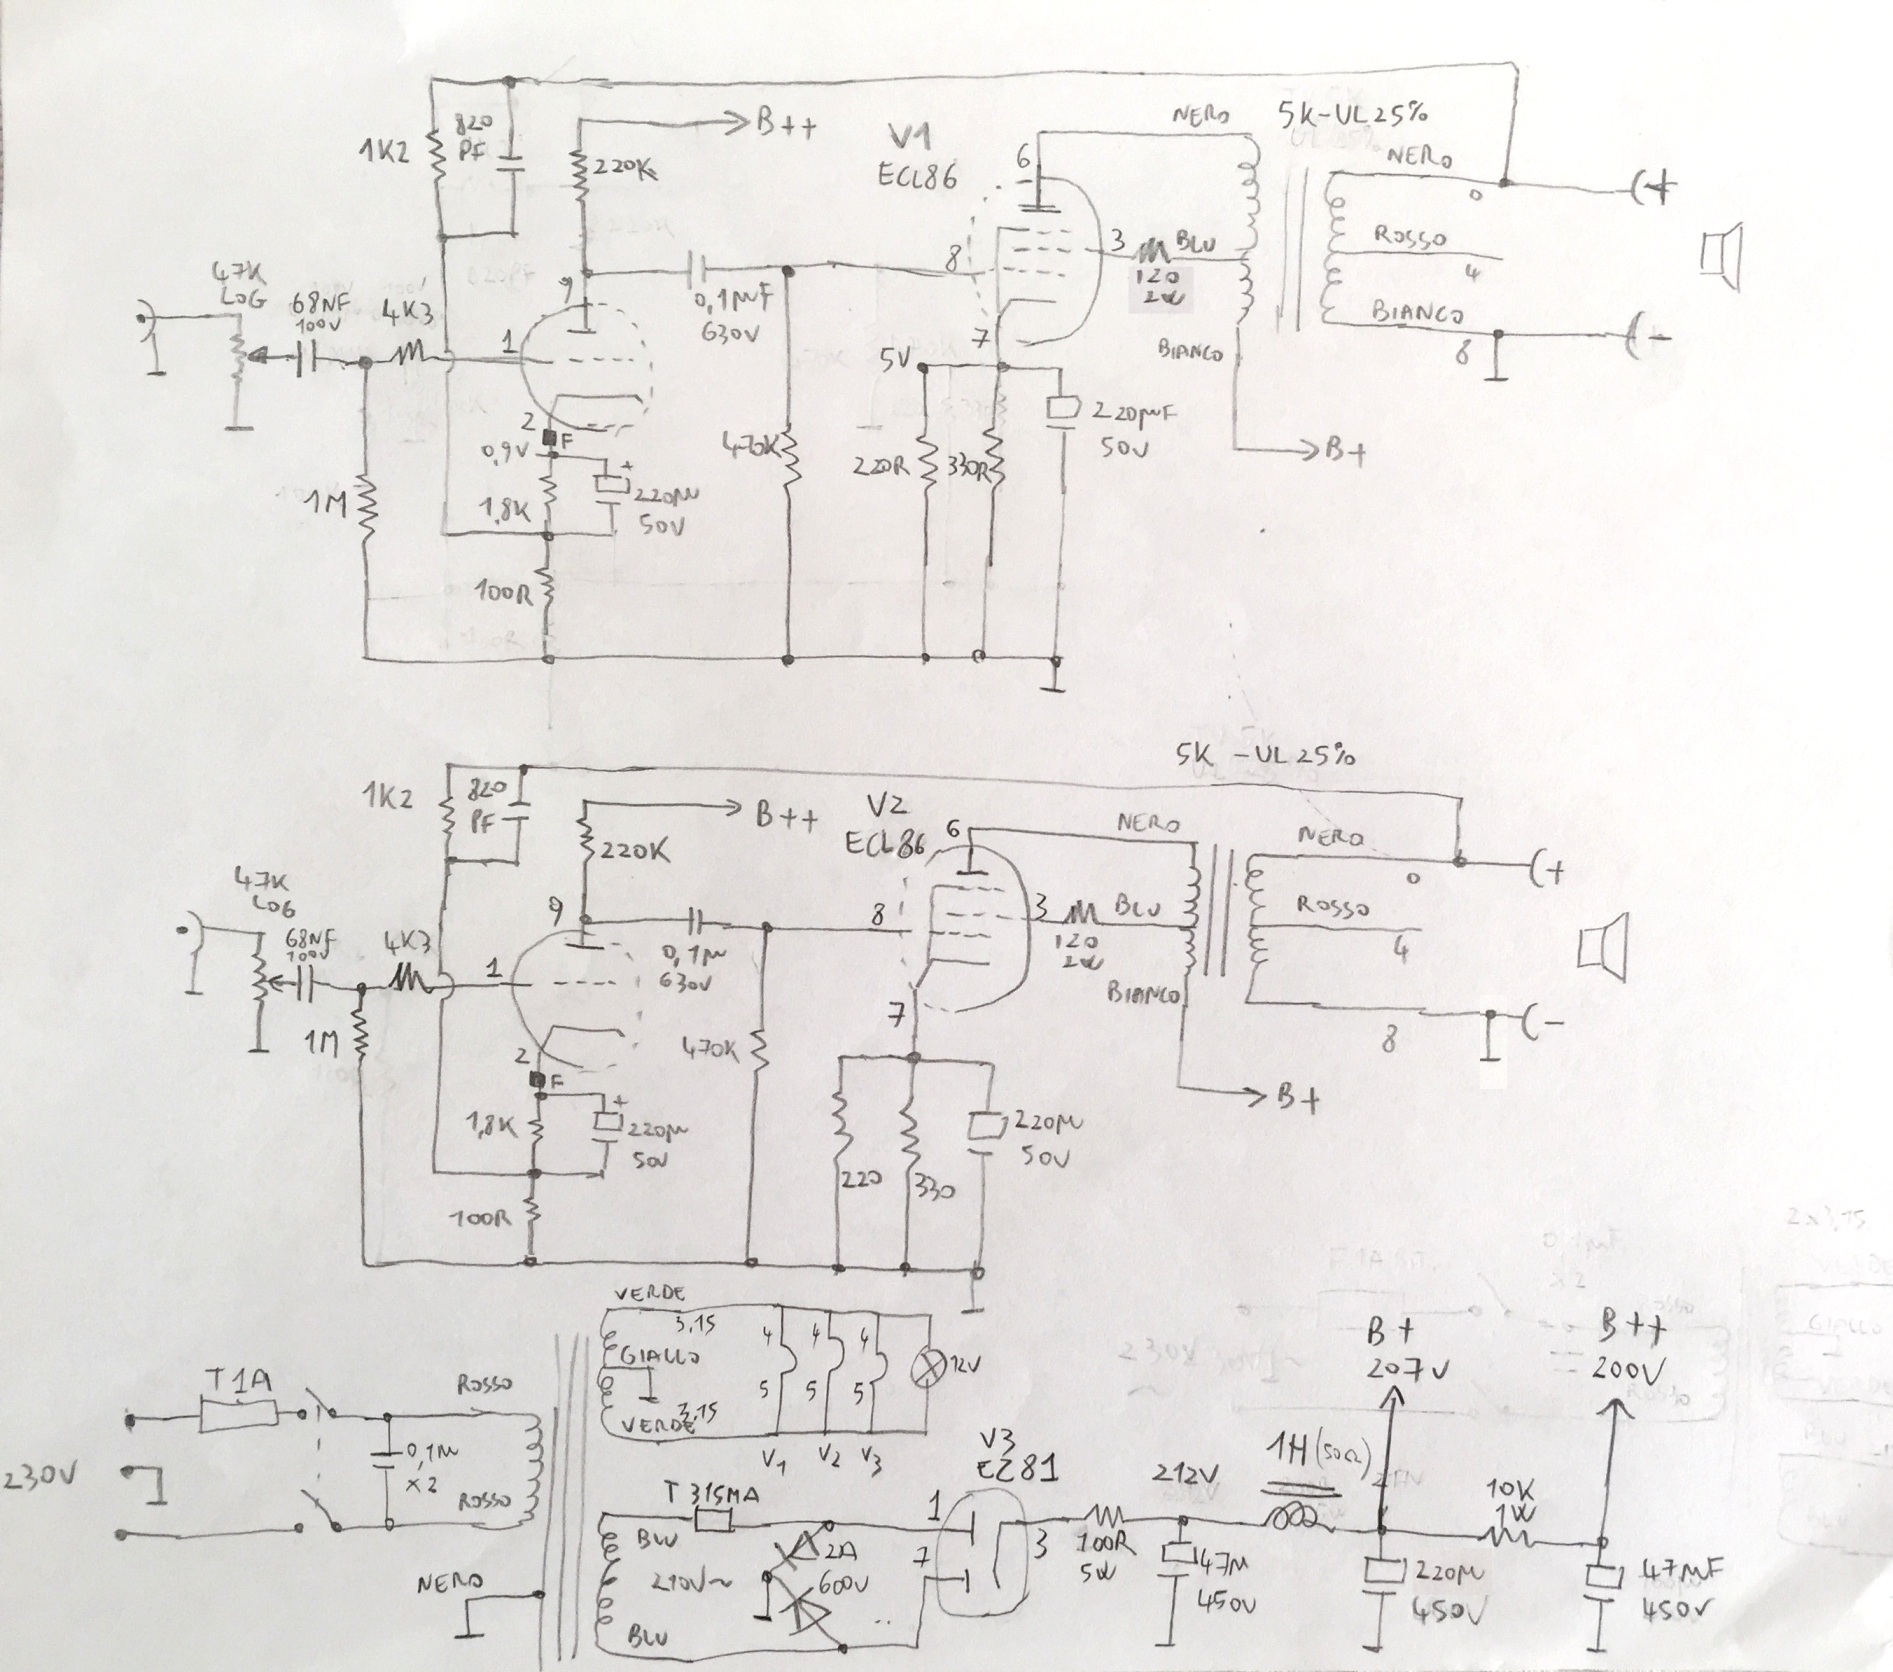 1K2
820
PF
220K
B++
V1
ECL86
NERO
5K-UL25%
6
NERO
0
(+
47K
LOG
68NF
100V
4K3
1
9
0,1µF
630V
8
3
BLU
120
2W
ROSSO
4
7
BIANCO
BIANCO
8
(-
5V
2
F
0,9V
+
1,8K
220µ
50V
470K
220R
330R
220µF
50V
B+
1M
100R
5K -UL25%
1K2
820
PF
220K
B++
V2
ECL86
6
NERO
NERO
0
(+
47K
LOG
68NF
100V
4K3
1
9
0,1µ
630V
8
3
BLU
120
2W
ROSSO
4
BIANCO
7
8
(-
1M
2
F
+
1,8K
220µ
50V
470K
220
330
220µ
50V
B+
100R
VERDE
3,15
GIALLO
3,15
VERDE
4
4
4
12V
5
5
5
V1
V2
V3
T1A
ROSSO
230V
0,1µ
X2
ROSSO
NERO
T 315MA
BLU
210V~
BLU
2A
600V
V3
EZ81
1
7
3
100R
5W
212V
47µ
450V
1H (50Ω)
B+
207V
220µ
450V
10K
1W
B++
200V
47µF
450V